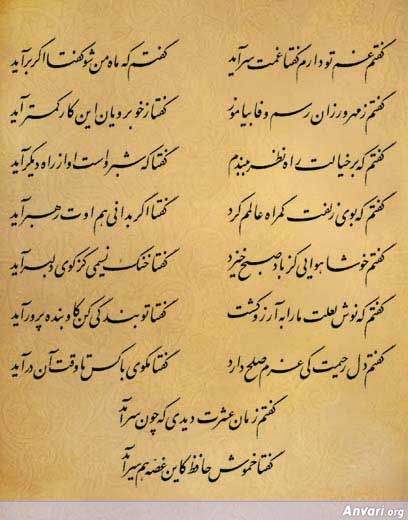 گفتم غم تو دارم گفتا غمت سر آید گفتم که ماه من شو گفتا اگر برآید
گفتم ز مهرورزان رسم وفا بیاموز گفتا ز خوبرویان این کار کمتر آید
گفتم که بر خیالت راه نظر ببندم گفتا که شبرو است او از راه دیگر آید
گفتم که بوی زلفت گمراه عالمم کرد گفتا اگر بدانی هم اوت رهبر آید
گفتم خوشا هوایی کز باد صبح خیزد گفتا خنک نسیمی کز کوی دلبر آید
گفتم که نوش لعلت ما را به آرزو کشت گفتا تو بندگی کن کاو بنده پرور آید
گفتم دل رحیمت کی عزم صلح دارد گفتا مگوی با کس تا وقت آن درآید
گفتم زمان عشرت دیدی که چون سر آمد
گفتا خموش حافظ کاین غصه هم سر آید
Anvari.org